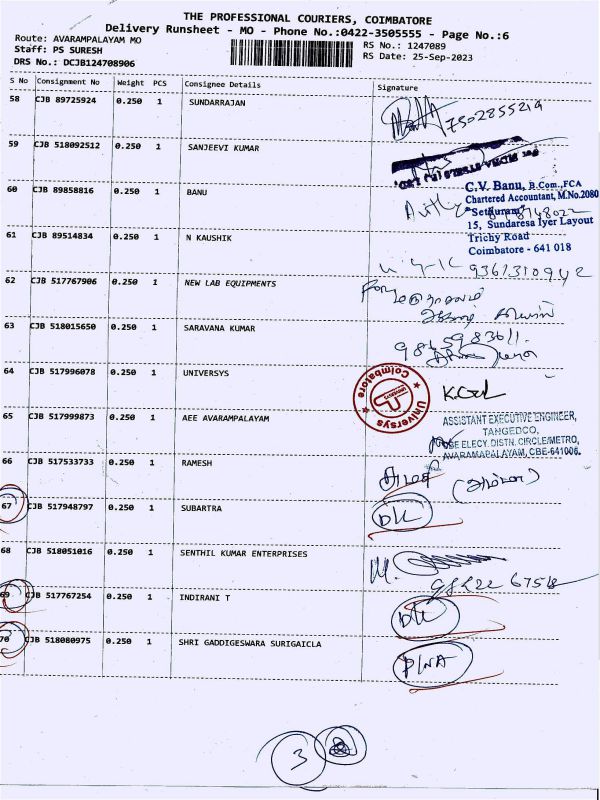 THE PROFESSIONAL COURIERS, COIMBATORE
Delivery Runsheet - MO - Phone No.:0422-3505555 - Page No.:6
Route: AVARAMPALAYAM MO
RS No.: 1247089
Staff: PS SURESH
RS Date: 25-Sep-2023
DRS No.: DCJB124708906
S No Consignment No Weight PCS Consignee Details Signature
58 CJB 89725924 0.250 1 SUNDARRAJAN
7502855219
59 CJB 518092512 0.250 1 SANJEEVI KUMAR
60 CJB 89858816 0.250 1 BANU
C.V. Banu, B.Com.,FCA
Chartered Accountant, M.No.2080
"Sethuram"
15, Sundaresa Iyer Layout
Trichy Road
Coimbatore - 641 018
61 CJB 89514834 0.250 1 N KAUSHIK
9361310942
62 CJB 517767906 0.250 1 NEW LAB EQUIPMENTS
For
63 CJB 518015650 0.250 1 SARAVANA KUMAR
64 CJB 517996078 0.250 1 UNIVERSYS
Universys
Coimbatore
65 CJB 517999873 0.250 1 AEE AVARAMPALAYAM
ASSISTANT EXECUTIVE ENGINEER,
TANGEDCO,
ELECY. DISTN. CIRCLE/METRO,
AVARAMAPALAYAM, CBE-641006.
66 CJB 517533733 0.250 1 RAMESH
67 CJB 517948797 0.250 1 SUBARTRA
DL
68 CJB 518051016 0.250 1 SENTHIL KUMAR ENTERPRISES
69 CJB 517767254 0.250 1 INDIRANI T
DL
70 CJB 518080975 0.250 1 SHRI GADDIGESWARA SURIGAICLA
P/NA
3